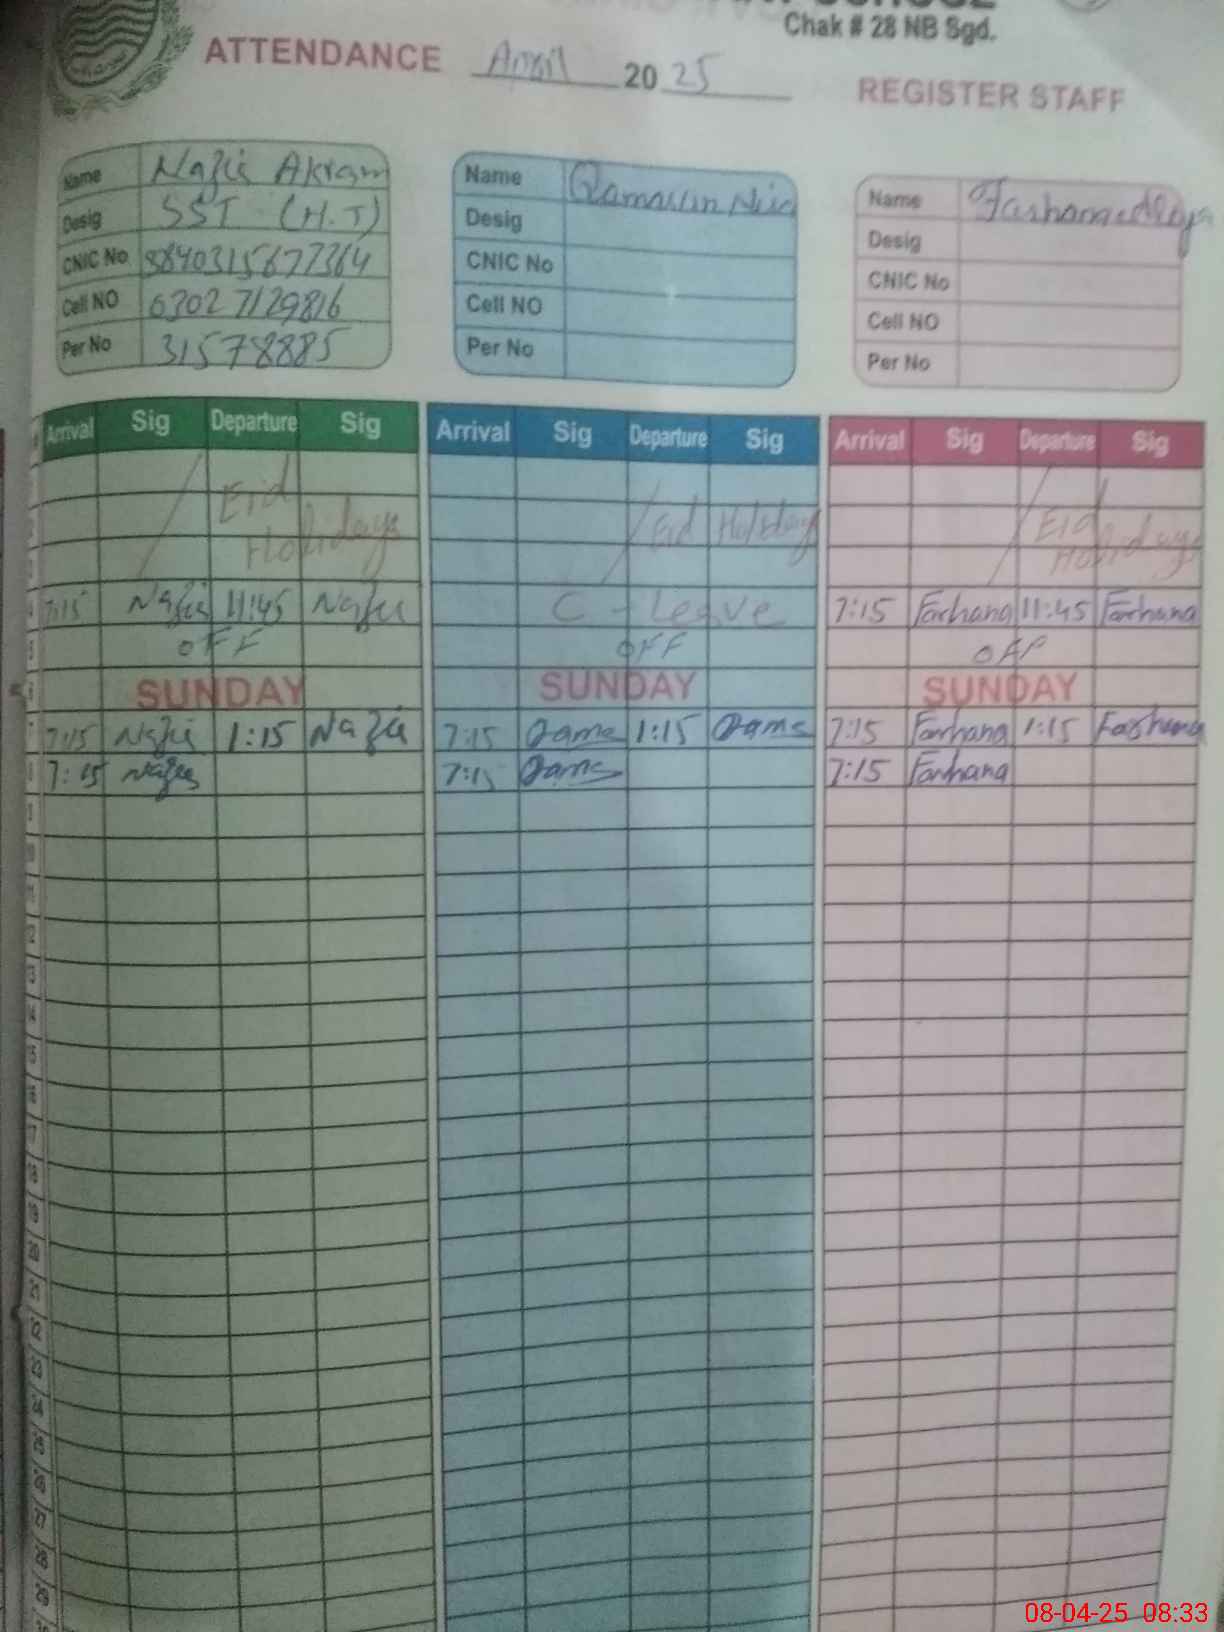 SCHOOL
Chak # 28 NB Sgd.
ATTENDANCE April 20 25 REGISTER STAFF
Name Akram
Desig SST (H.T)
CNIC No 3840315677364
Cell NO 03027129816
Per No 31578885
Name
Desig
CNIC No
Cell NO
Per No
Name
Desig
CNIC No
Cell NO
Per No
Arrival Sig Departure Sig Arrival Sig Departure Sig Arrival Sig Departure Sig
Eid Holidays Eid Holidays Eid Holidays
4 7:15 11:45 C - Leave 7:15 Farhana 11:45 Farhana
5 OFF OFF OFF
6 SUNDAY SUNDAY SUNDAY
7 7:15 1:15 7:15 1:15 7:15 Farhana 1:15 Farhana
8 7:15 7:15 7:15 Farhana
9
10
11
12
13
14
15
16
17
18
19
20
21
22
23
24
25
26
27
28
29
08-04-25 08:33